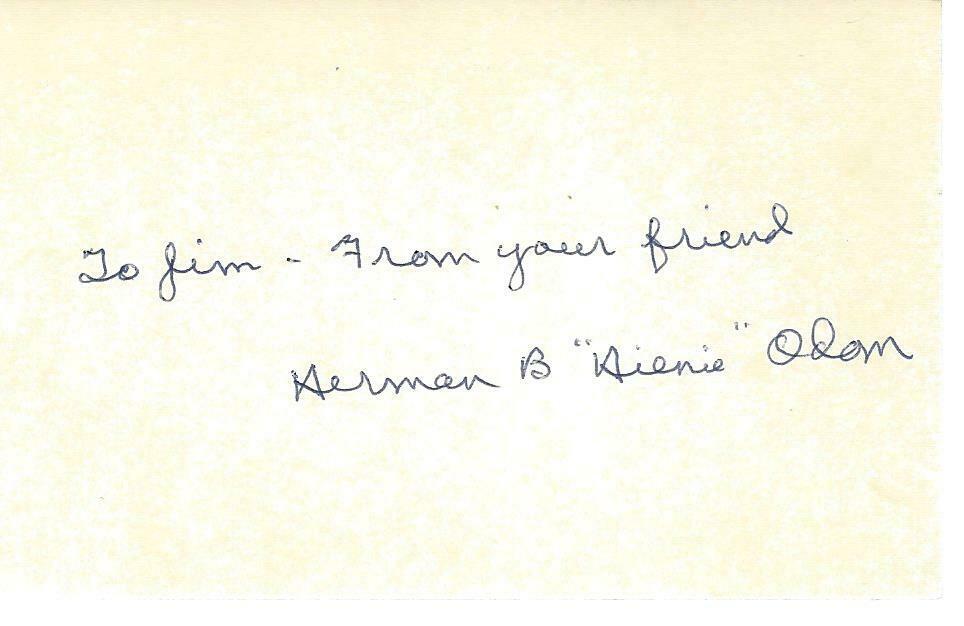 To Jim - From your friend
Herman B "Hienie" Odom